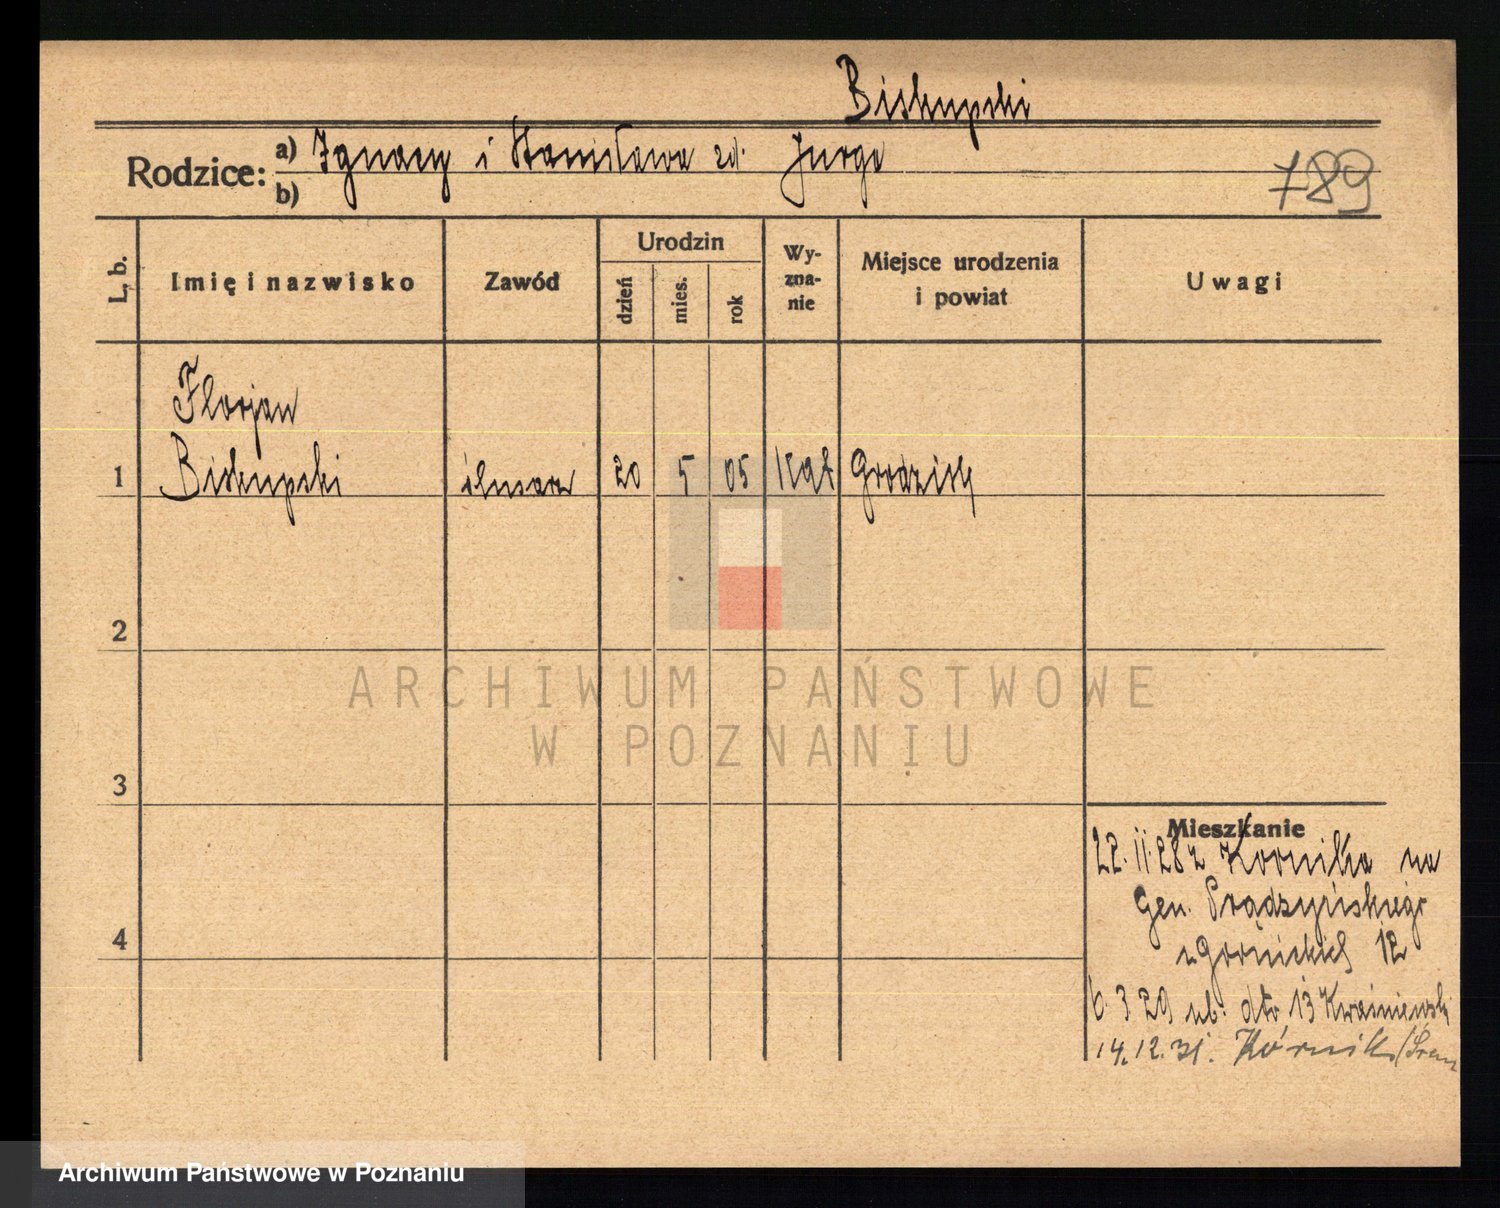 Biskupski
Rodzice: a) Ignacy i Stanisława zd. Jurga
b)
789
L. b.
Imię i nazwisko
Zawód
Urodzin
dzień
mies.
rok
Wy-
zna-
nie
Miejsce urodzenia
i powiat
Uwagi
Florjan
1 Biskupski ślusarz 20 5 05 Kat Grodzisk
2
3
4
Mieszkanie
22.11.28 z Kornika na
Gen. Prądzyńskiego
12
6.3 29 dto 13 Kwaśniewski
14.12.31. Kórnik
ARCHIWUM PAŃSTWOWE
W POZNANIU
Archiwum Państwowe w Poznaniu